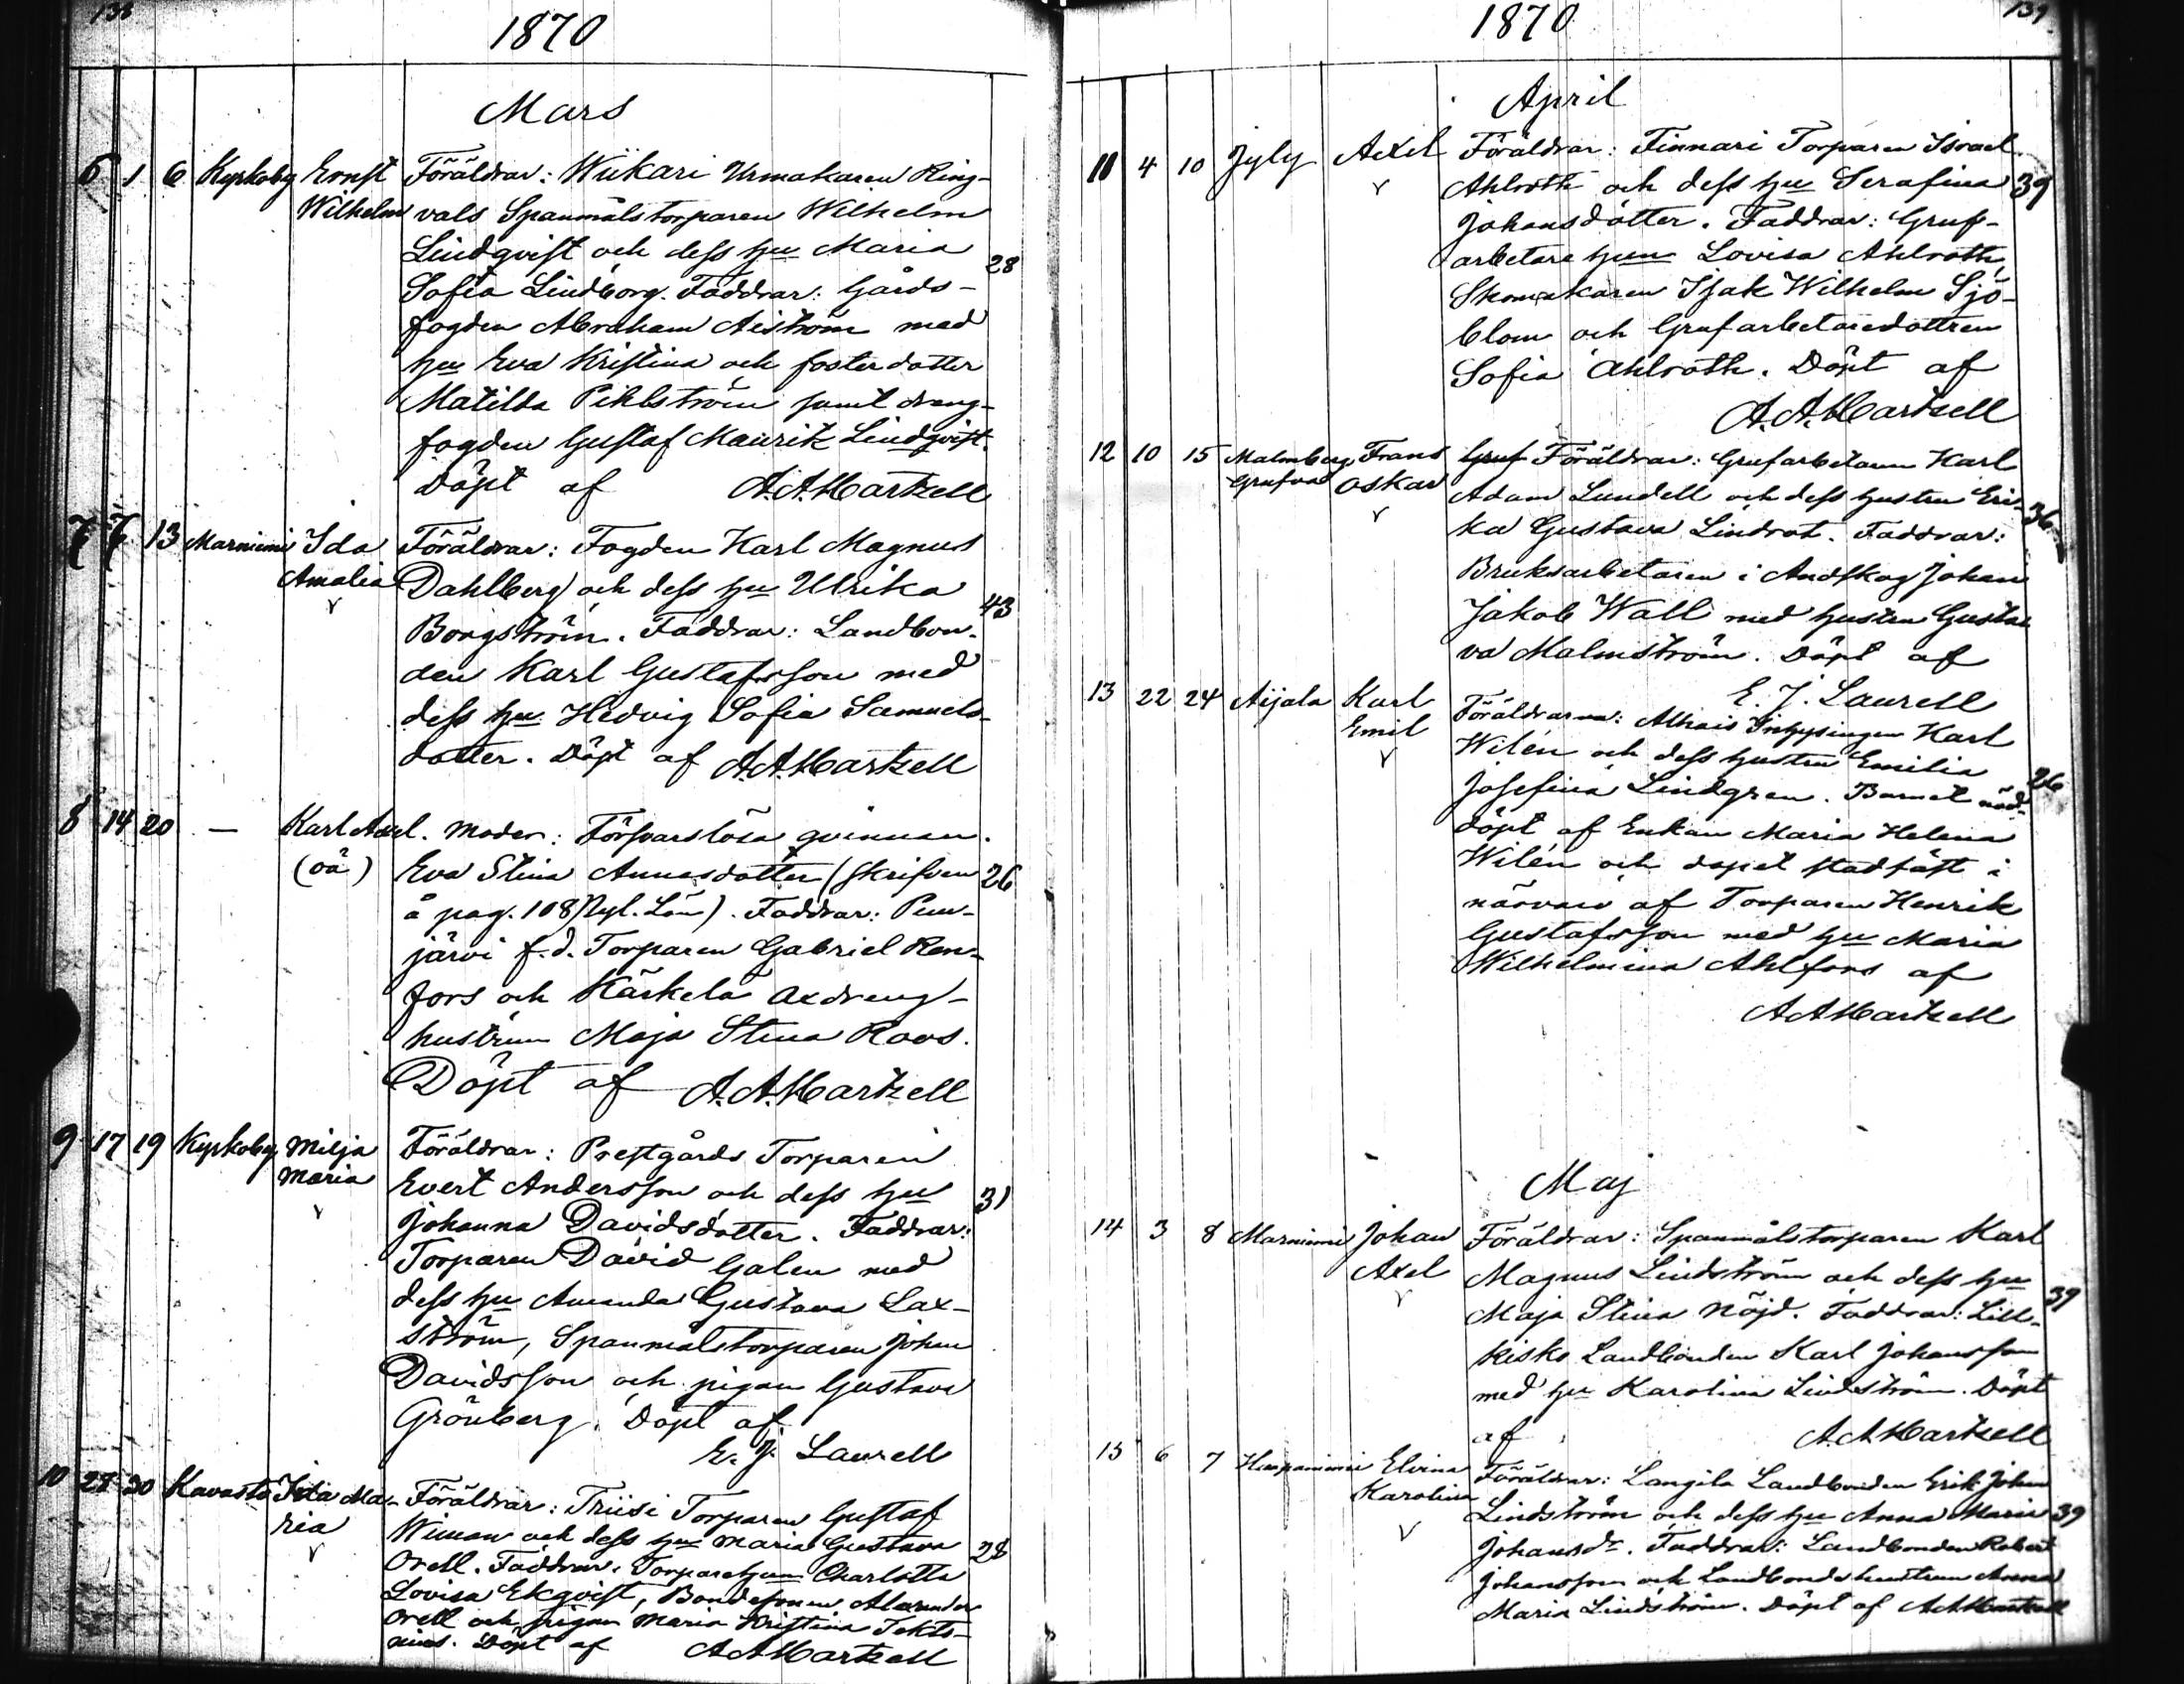 138
1870
Mars
6 1 6 Kyrkoby Ernst Föräldrar: Wiikari Urmakaren Ring-
Wilhelm vals Spanmålstorparen Wilhelm
Lindqvist och dess hu Maria
Sofia Lindborg. Faddrar: Gårds- 28
fogden Abraham Aiström med
hu Eva Kristina och fosterdotter
Matilda Pihlström samt dreng-
fogden Gustaf Mauritz Lindqvist.
Döpt af A.A.Hartzell
7 7 13 Marniemi Ida Föräldrar: Fogden Karl Magnus
Amalia Dahlberg och dess hu Ulrika
v Borgström. Faddrar: Landbon- 43
den Karl Gustafsson med
dess hu Hedvig Sofia Samuels-
dotter. Döpt af A.A.Hartzell
8 14 20 — Karl Axel. Moder: Försvarslösa qvinnan
(oä) Eva Stina Annasdotter (skrifven 26
å pag. 108 Nyl. Län). Faddrar:
järvi f.d. Torparen Gabriel Ren-
fors och Kärkelä axdreng-
hustrun Maja Stina Roos.
Döpt af A.A.Hartzell
9 17 19 Kyrkoby Milja Föräldrar: Prestgårds Torparen
Maria Evert Andersson och dess hu 31
v Johanna Davidsdotter. Faddrar:
Torparen David Galen med
dess hu Amanda Gustava Lax-
ström, Spanmålstorparen Johan
Davidsson och pigan Gustava
Grönberg. Döpt af
E. J. Laurell
10 28 30 Kavasto Ida Ma- Föräldrar: Triisi Torparen Gustaf
ria Wiman och dess hu Maria Gustava 28
v Orell. Faddrar: Torparehun Charlotta
Lovisa Ekqvist, Bondesonen Alexander
Orell och pigan Maria Kristina
Döpt af A.A.Hartzell
139
1870
April
11 4 10 Jyly Axel Föräldrar: Finnari Torparen Israel
v Ahlroth och dess hu Serafina 39
Johansdotter. Faddrar: Gruf-
arbetare hun Lovisa Ahlroth,
Skomakaren Isak Wilhelm Sjö-
blom och Grufarbetaredottren
Sofia Ahlroth. Döpt af
A.A.Hartzell
12 10 15 Malmberg Frans Gruf Föräldrar: Grufarbetaren Karl
Grufva Oskar Adam Lundell och dess hustru Eri- 36
v ka Gustava Lindrot. Faddrar:
Bruksarbetaren i Andskog Johan
Jakob Wall med hustru Gusta
va Malmström. Döpt af
E. J. Laurell
13 22 24 Aijala Karl Föräldrarna: Alhais Inhysingen Karl
Emil Wilén och dess hustru Emilia
v Josefina Lindgren. Barnet nöd- 26
döpt af Enkan Maria Helena
Wilén och dopet stadfäst i
närvaro af Torparen Henrik
Gustafsson med hu Maria
Wilhelmina Ahlfors af
A A Hartzell
Maj
14 3 8 Marniemi Johan Föräldrar: Spanmålstorparen Karl
Axel Magnus Lindström och dess hu
v Maja Stina Nöjd. Faddrar: Lill- 39
kisko Landbonden Karl Johansson
med hu Karolina Lindström. Döpt
af A.A.Hartzell
15 6 7 Elvina Föräldrar: Langila Landbonden Erik Johan
Karolina Lindström och dess hu Anna Maria 39
v Johansdr. Faddrar: Landbonden Robert
Johansson och Landbondehustrun Anna
Maria Lindström. Döpt af A A Hartzell